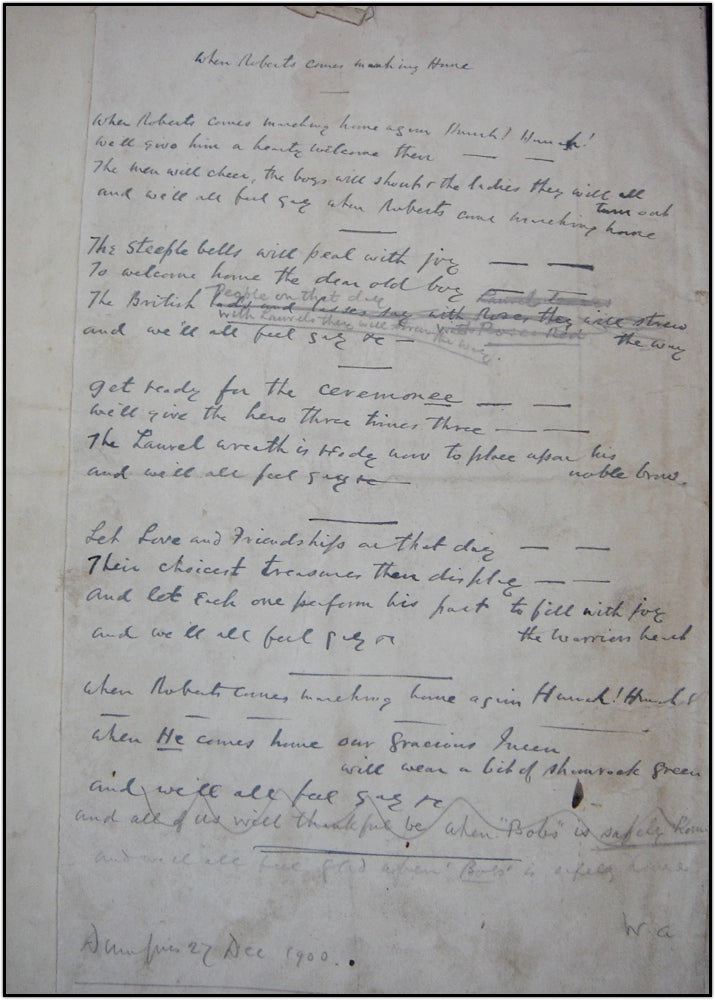 When Roberts comes marching Home
When Roberts comes marching home again Hurrah! Hurrah!
We'll give him a hearty welcome then
The men will cheer, the boys will shout & the ladies they will all
turn out
and we'll all feel gay when Roberts come marching home
The Steeple bells will peal with joy
To welcome home the dear old boy Laurel
People on that day
The British lads and lasses say with Roses they will strew
the way
with Laurels they will strew the way with Roses Red
and we'll all feel gay &c
Get ready for the ceremonee
We'll give the hero three times three
The Laurel wreath is ready now to place upon his
noble brow.
and we'll all feel gay &c
Let Love and Friendship on that day
Their choicest treasures then display
and let Each one perform his part to fill with joy
the Warriors heart
and we'll all feel gay &c
When Roberts comes marching home again Hurrah! Hurrah!
When He comes home our Gracious Queen
will wear a bit of shamrock green
and we'll all feel gay &c
and all of us will thankful be when "Bobs" is safely home
and we'll all feel glad when "Bobs" is safely home
W. a
Dumfries 27 Dec 1900.